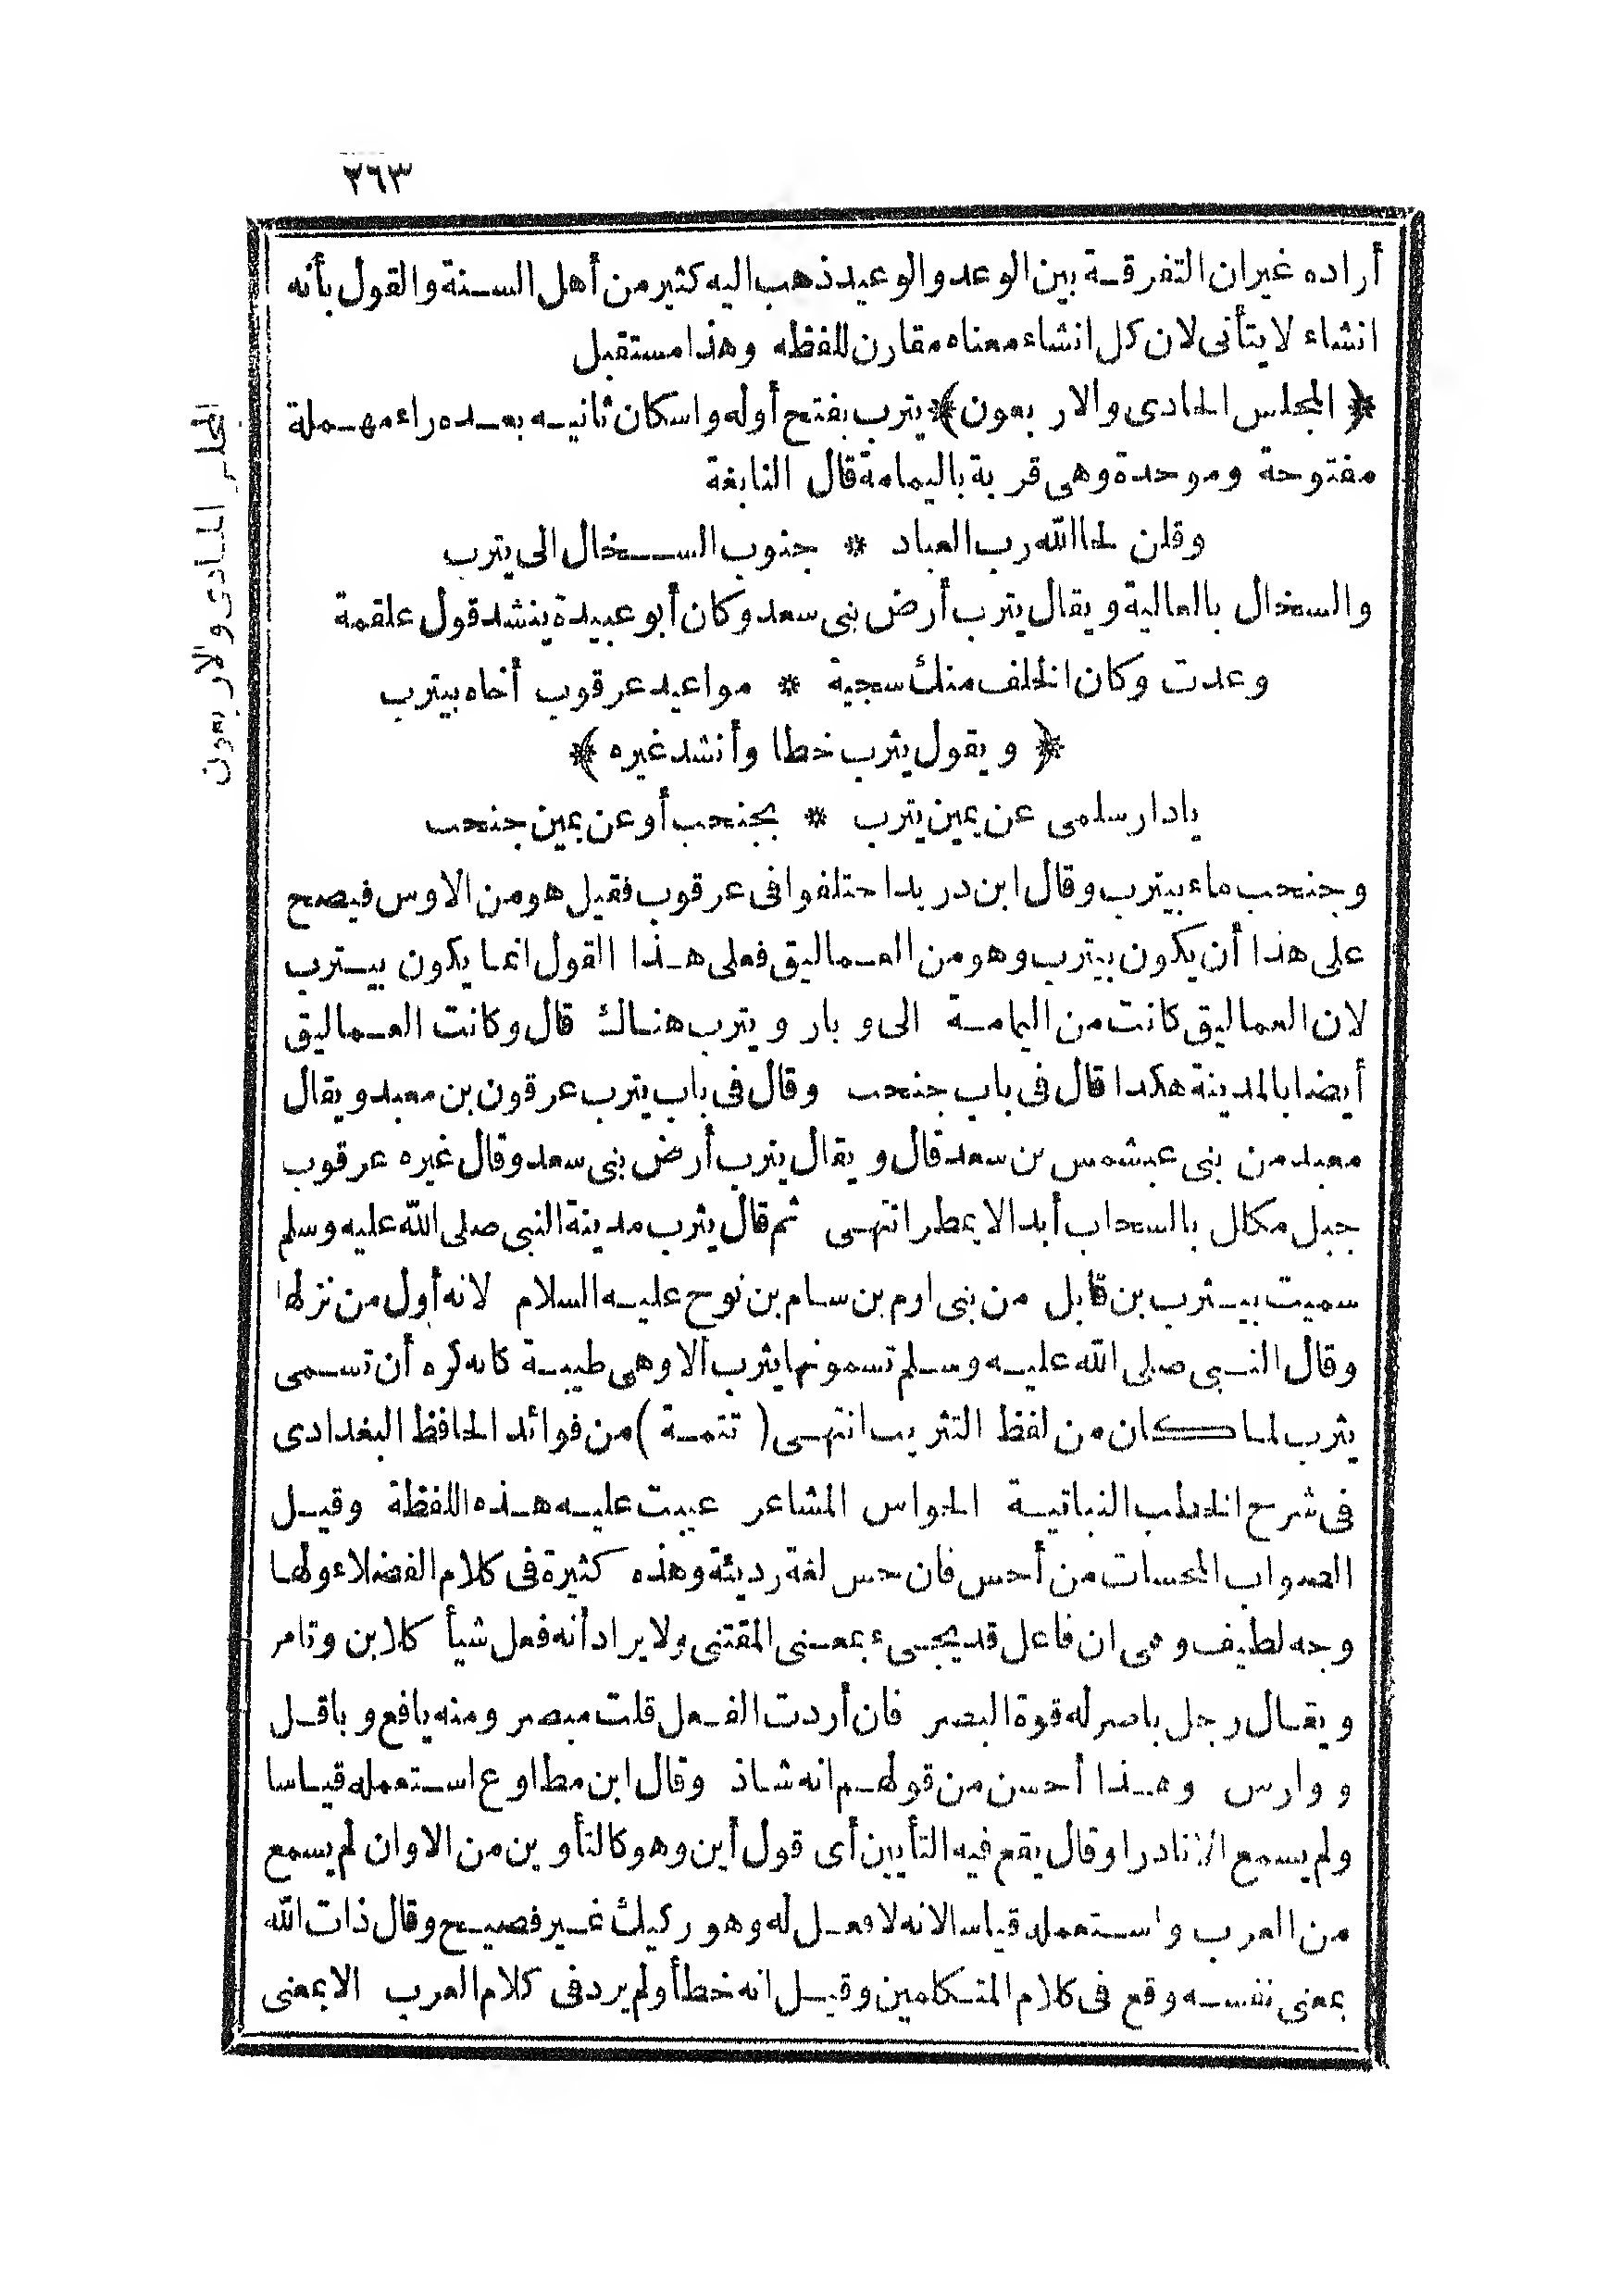 ٢٦٣
أراده غير ان التفرقة بين الوعد والوعيد ذهب اليه كثير من أهل السنة والقول بأنه
انشاء لا يتأتى لان كل انشاء معناه مقارن للفظه وهذا مستقبل
﴿ المجلس الحادى والاربعون ﴾ يترب بفتح أوله واسكان ثانيه بعده راء مهملة
مفتوحة وموحدة وهى قرية باليمامة قال النابغة
وقلن لحا الله رب العباد * جنوب السخال الى يترب
والسخال بالعالية ويقال يترب أرض بنى سعد وكان أبو عبيدة ينشد قول علقمة
وعدت وكان الخلف منك سجية * مواعيد عرقوب أخاه بيترب
﴿ ويقول يثرب خطا وأنشد غيره ﴾
يادار سلمى عن يمين يترب * بجنحب أو عن يمين جنحب
وجنحب ماء بيترب وقال ابن دريد اختلفوا فى عرقوب فقيل هو من الاوس فيصح
على هذا أن يكون بيترب وهو من العماليق فعلى هذا القول انما يكون بيترب
لان العماليق كانت من اليمامة الى وبار ويترب هناك قال وكانت العماليق
أيضا بالمدينة هكذا قال فى باب جنحب وقال فى باب يترب عرقون بن معبد ويقال
معبد من بنى عبشمس بن سعد قال ويقال يترب أرض بنى سعد وقال غيره عرقوب
جبل مكلل بالسحاب أبدا لا يمطر انتهى ثم قال يثرب مدينة النبى صلى الله عليه وسلم
سميت بيثرب بن قابل من بنى ارم بن سام بن نوح عليه السلام لانه أول من نزلها
وقال النبى صلى الله عليه وسلم تسمونها يثرب ألا وهى طيبة كانه كره أن تسمى
يثرب لما كان من لفظ التثريب انتهى (تتمة) من فوائد الحافظ البغدادى
فى شرح الخطب النباتية الحواس المشاعر عيبت عليه هذه اللفظة وقيل
الصواب المحسات من أحس فان حس لغة رديئة وهذه كثيرة فى كلام الفضلاء ولها
وجه لطيف وهى ان فاعل قد يجىء بمعنى المقتنى ولا يراد أنه فعل شيأ كلابن وتامر
ويقال رجل باصر له قوة البصر فان أردت الفعل قلت مبصر ومنه يافع وباقل
ووارس وهذا أحسن من قولهم انه شاذ وقال ابن مطاوع استعمله قياسا
ولم يسمع الا نادرا وقال يقع فيه التأيين أى قول أين وهو كالتأوين من الاوان لم يسمع
من العرب واستعمله قياسا لانه لا فعل له وهو ركيك غير فصيح وقال ذات الله
بمعنى نفسه وقع فى كلام المتكلمين وقيل انه خطأ ولم يرد فى كلام العرب الا بمعنى
المجلس الحادى والاربعون